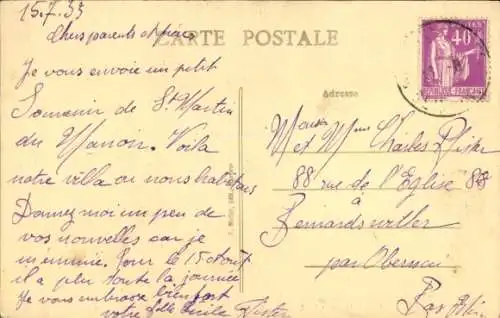 15.7.33
Chers parents et frères
CARTE POSTALE
Je vous envoie un petit
Souvenir de St Martin
du Manoir. Voila
notre villa ou nous habitons
Donnez moi un peu de
vos nouvelles car je
m'ennuie. Pour le 15 août
il a plu toute la journée
Je vous embrasse bien fort
votre fille Pfister
40c
REPUBLIQUE FRANÇAISE
Adresse
Mr et Mme Charles Pfister
88 rue de l'Eglise 88
à
Bernardswiller
par Obernai
Bas Rhin